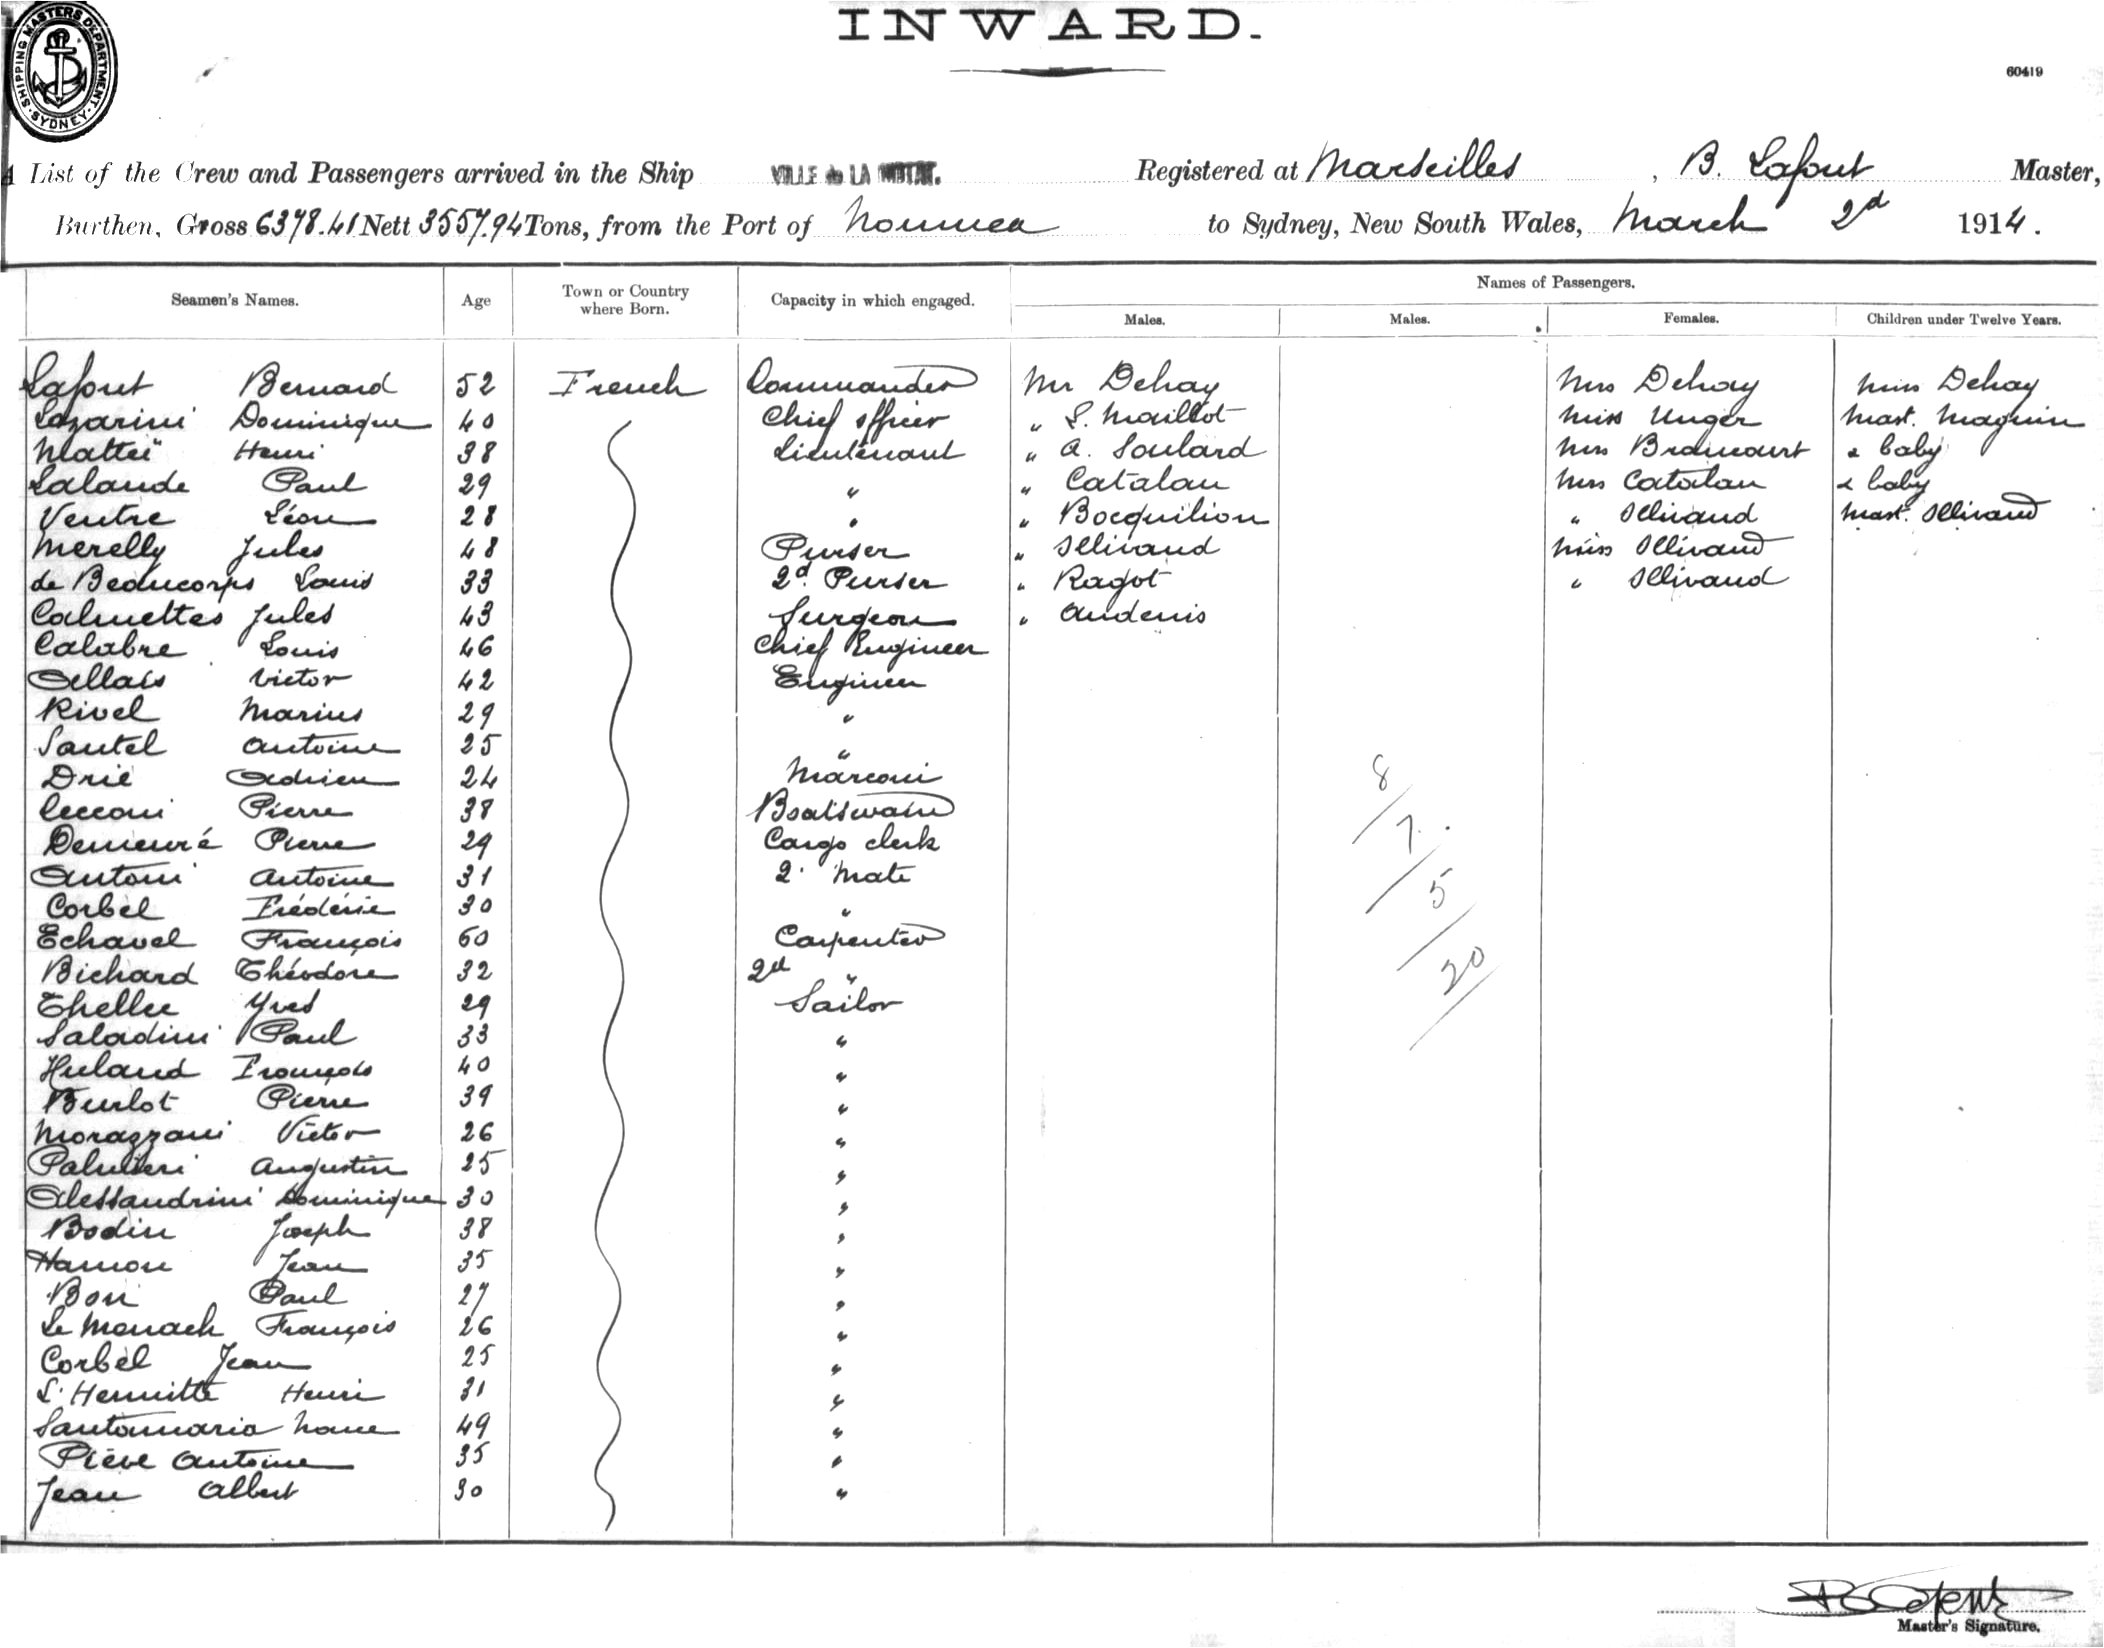 SHIPPING MASTERS DEPARTMENT. SYDNEY.
INWARD.
60419
A List of the Crew and Passengers arrived in the Ship VILLE de LA CIOTAT. Registered at Marseilles, B. Lafont Master,
Burthen, Gross 6378.41 Nett 3557.94 Tons, from the Port of Noumea to Sydney, New South Wales, March 2d 1914.
Seamen's Names. Age Town or Country where Born. Capacity in which engaged. Names of Passengers.
Males. Males. Females. Children under Twelve Years.
Lafont Bernard 52 French Commander Mr Dehay Mrs Dehay Miss Dehay
Lazarini Dominique 40 Chief officer " S. Maillot Miss Unger Mast. Magnin
Mattei Henri 38 Lieutenant " A. Soulard Mrs Braucourt & baby
Lalande Paul 29 " " Catalan Mrs Catalan & baby
Ventre Léon 28 " " Bocquilion " Ollivaud Mast. Ollivaud
Merelly Jules 48 Purser " Ollivaud Miss Ollivaud
de Beaucorps Louis 33 2d Purser " Ragot " Ollivaud
Calmettes Jules 43 Surgeon " Audenis
Calabre Louis 46 Chief Engineer
Allais Victor 42 Engineer
Rivel Marius 29 "
Santel Antoine 25 "
Drié Adrien 24 Marconi
Cecconi Pierre 38 Boatswain
Demeuré Pierre 29 Cargo clerk
Antoni Antoine 31 2. Mate
Corbel Frédéric 30 "
Echavel François 60 Carpenter
Bichard Théodore 32 2d "
Thellec Yves 29 Sailor
Saladini Paul 33 "
Huland François 40 "
Burlot Pierre 39 "
Morazzani Victor 26 "
Palmieri Augustin 25 "
Alessandrini Dominique 30 "
Bodin Joseph 38 "
Hamon Jean 35 "
Bon Paul 27 "
Le Monach François 26 "
Corbel Jean 25 "
L'Hermitte Henri 31 "
Santamaria 49 "
Piève Antoine 35 "
Jean Albert 30 "
8/7/5/20
Master's Signature.